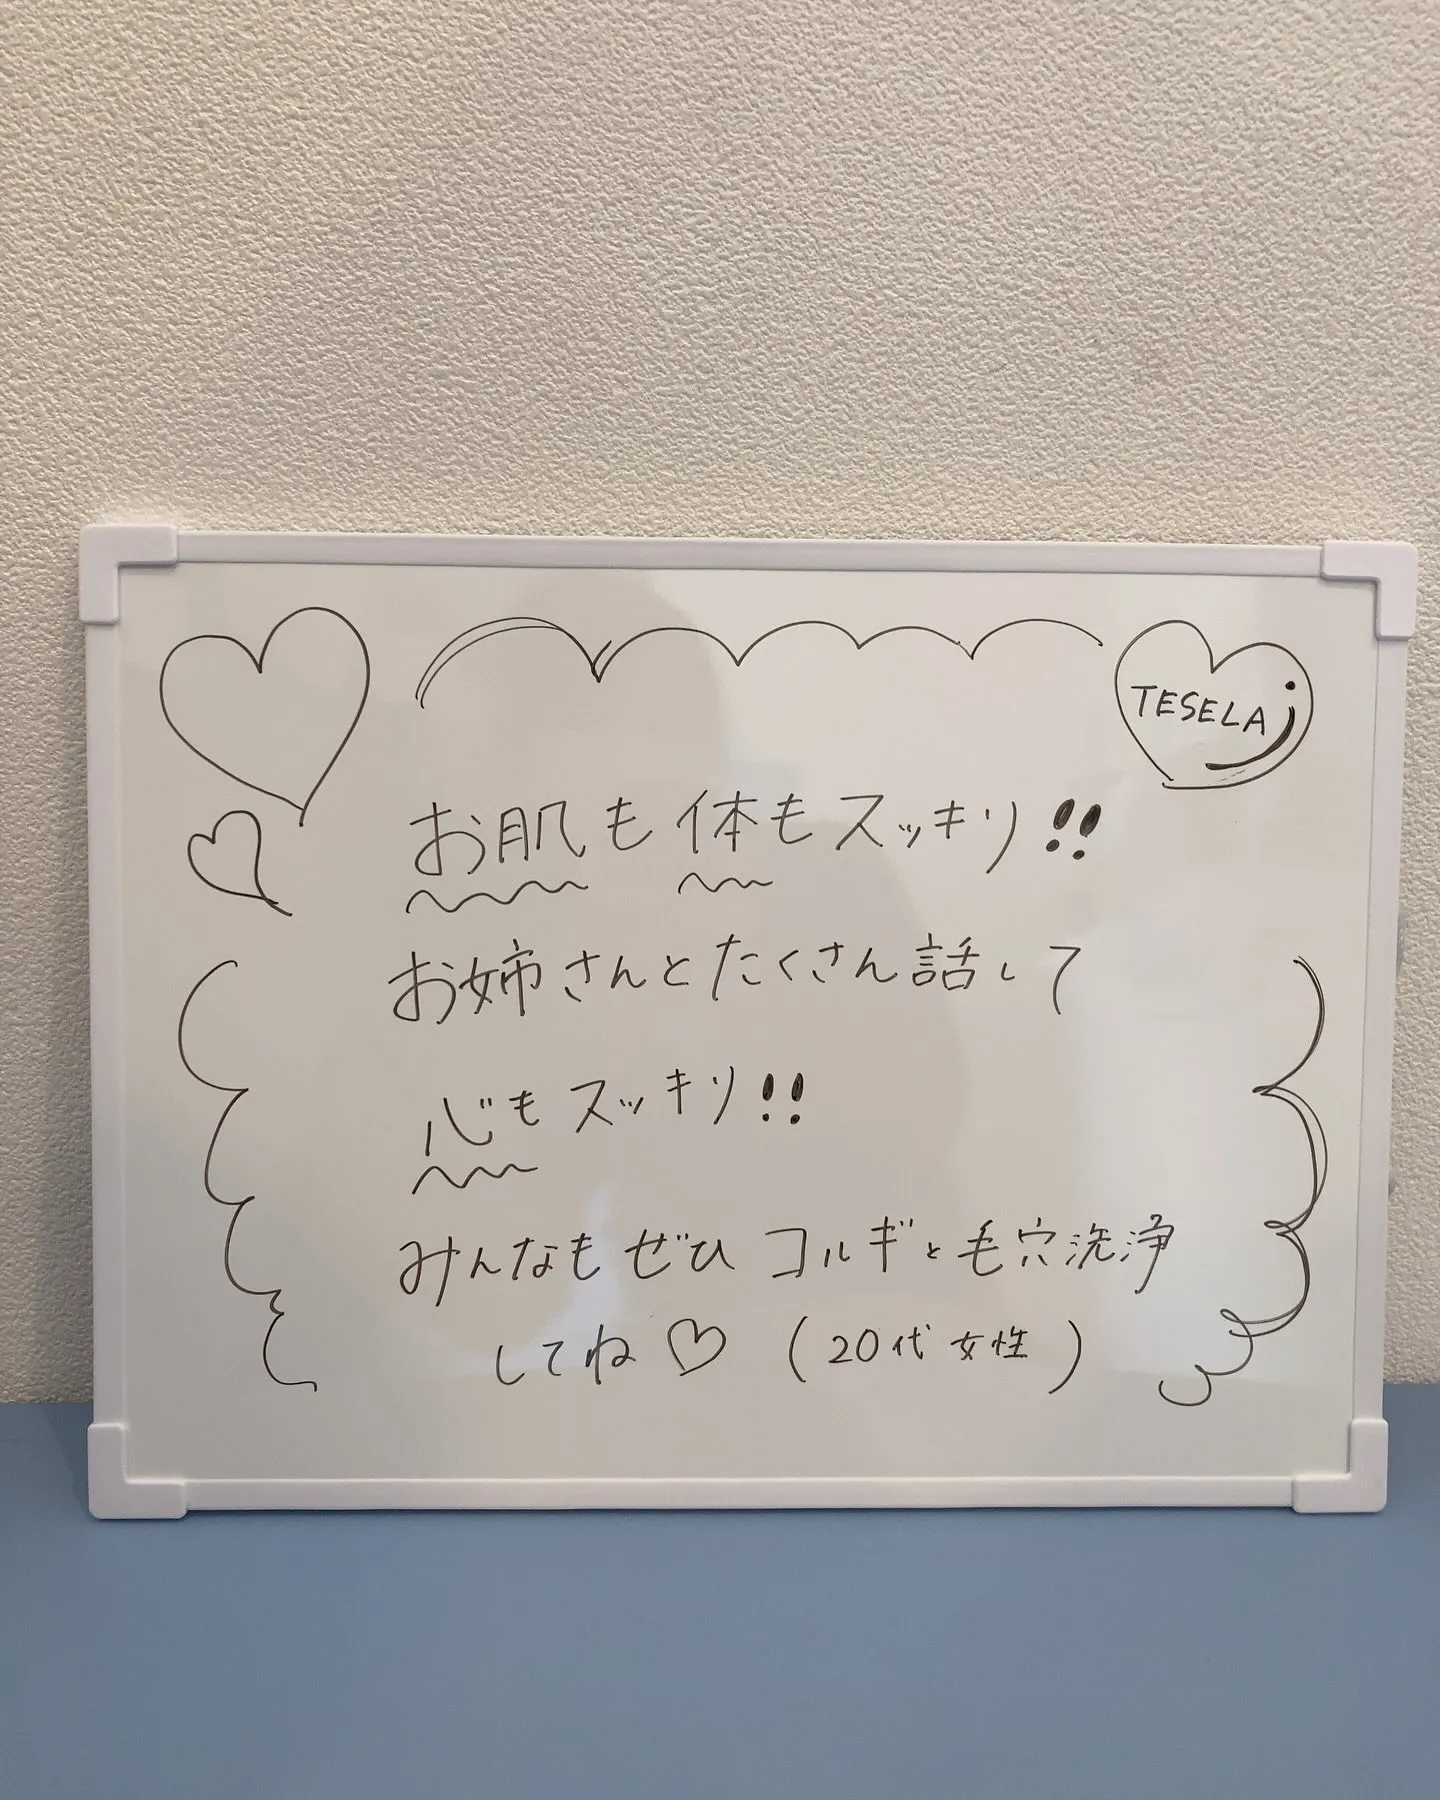 TESELA
お肌も体もスッキリ!!
お姉さんとたくさん話して
心もスッキリ!!
みんなもぜひコルギと毛穴洗浄
してね♡ (20代女性)